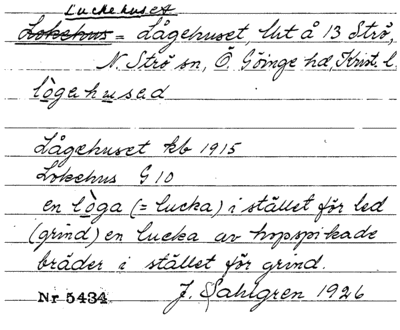 Luckehuset
Lokehus = Lågehuset, lht å 13 Strö,
N. Strö sn, Ö. Göinge hd, Krist. l.
lògahused
Lågehuset kb 1915
Lokehus G 10
en lòga (= lucka) i stället för led
(grind) en lucka av hopspikade
bräder i stället för grind.
Nr 5434 J. Sahlgren 1926